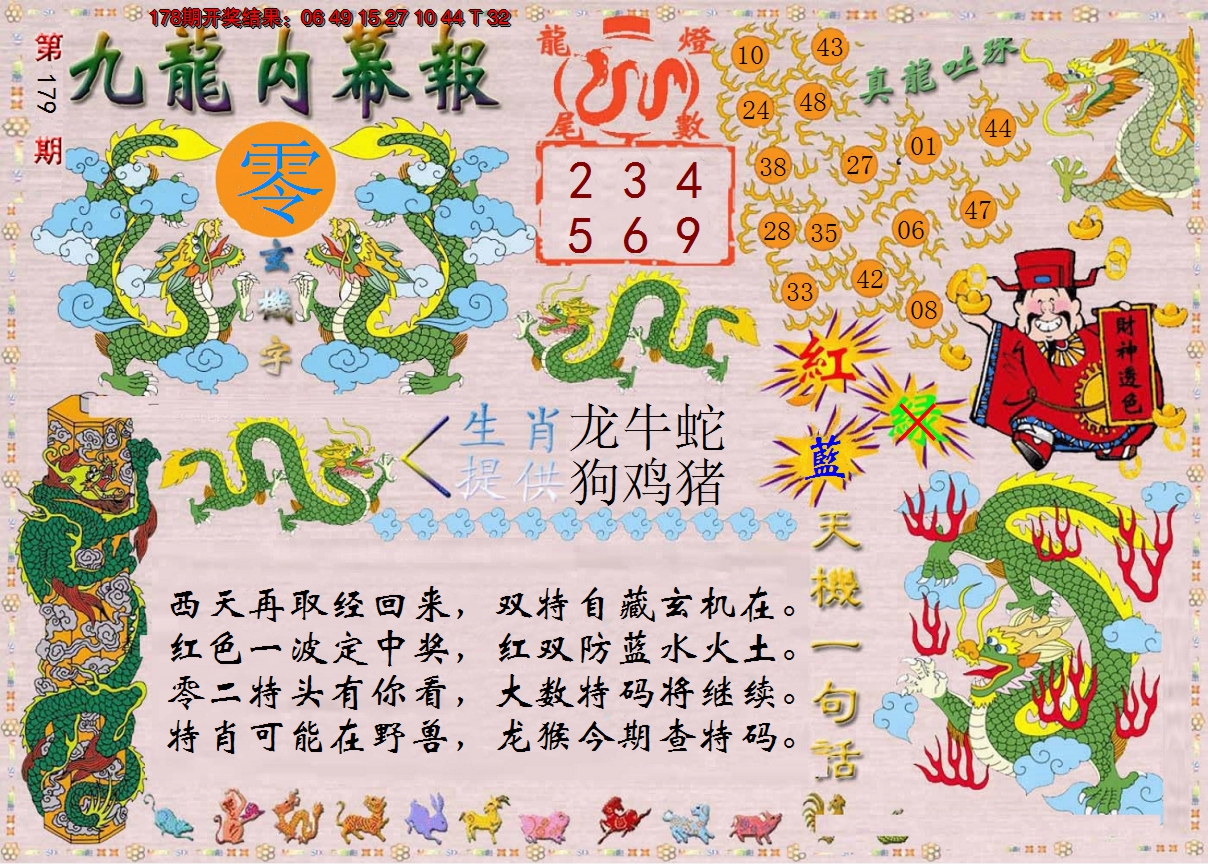 178期开奖结果：06 49 15 27 10 44 T 32
第179期
九龍内幕報
零
玄機字
龍燈
尾數
2 3 4
5 6 9
真龍吐珠
10
43
24
48
01
44
38
27
47
28
35
06
33
42
08
紅
绿
藍
財神透色
生肖 龙牛蛇
提供 狗鸡猪
天機一句話
西天再取经回来，双特自藏玄机在。
红色一波定中奖，红双防蓝水火土。
零二特头有你看，大数特码将继续。
特肖可能在野兽，龙猴今期查特码。